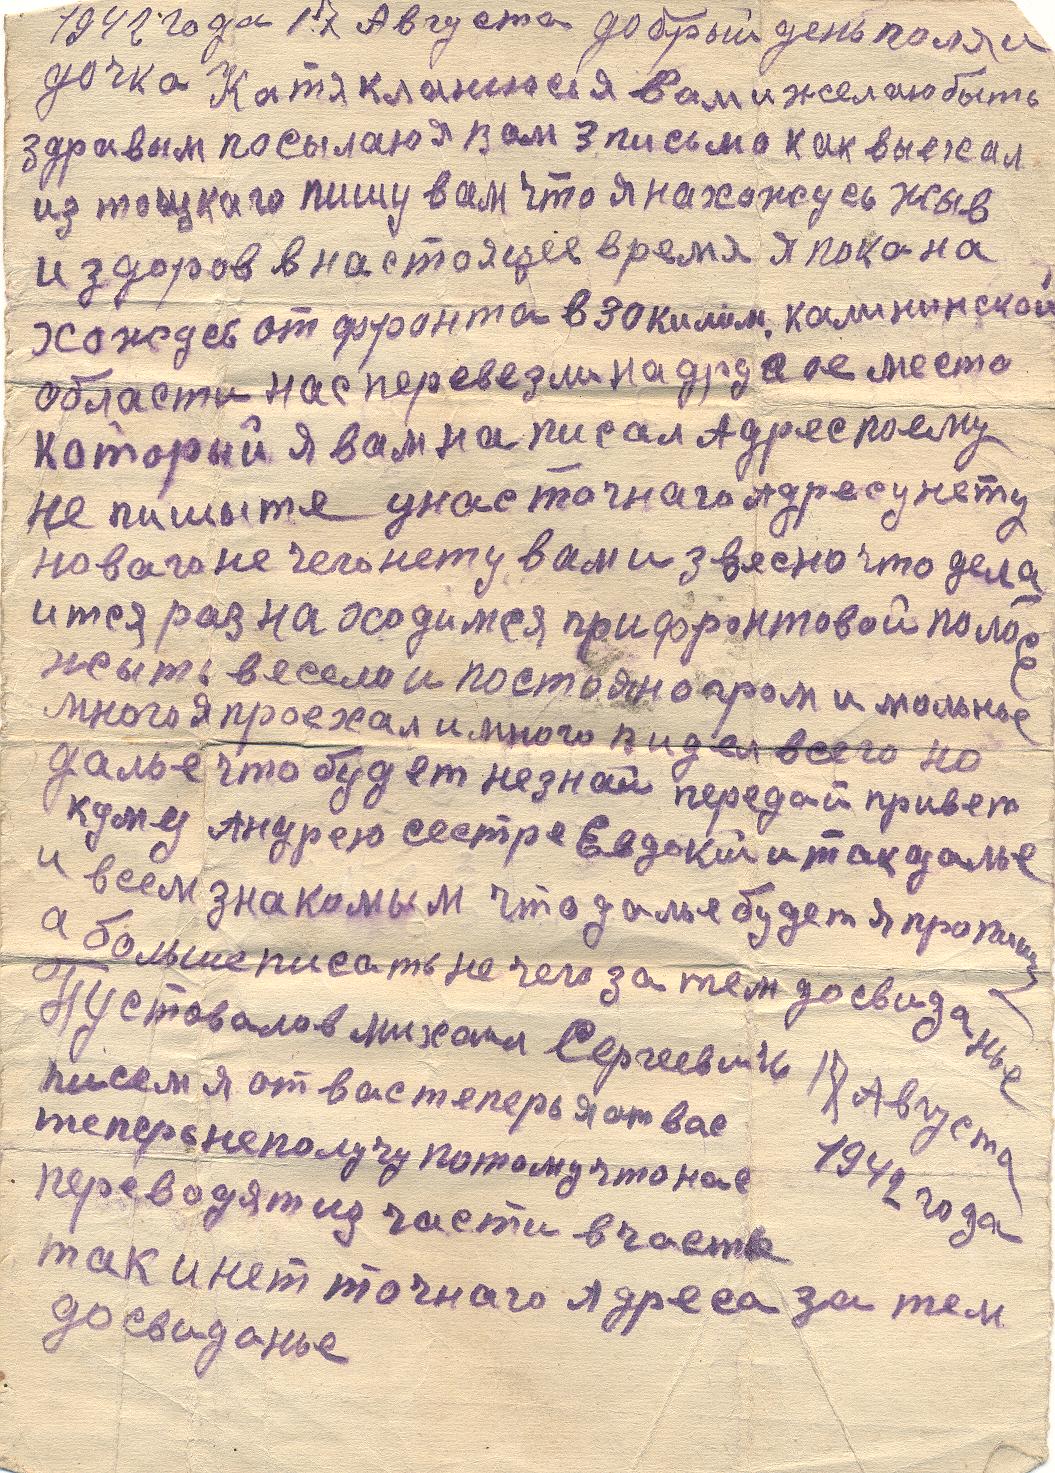 1942 года 17 Августа добрый день поля и
дочка Катя кланиюсья Вам и желаю быть
здравым посылаю я вам 3 письмо как выехал
из тоцкаго пишу вам что я нахожусь жыв
и здоров в настоящее время я пока на
хожусь от фронта в 30 килом. калининской
области нас перевезли на другое место
который я вам на писал Адрес поему
не пишытя унас точнаго Адресу нету
новаго не чего нету вам извесно что дела
ится раз на ходимся прифронтовой полосе
жыть весело и постояно гром и мольнье
много я проехал и много видел всего но
далье что будет незнай передай привет
куму Андрею сестре Евдокии и так далье
и всем знакомым что далье будет я пропишу
а больше писать не чего за тем досвиданье
Пустовалов михаил Сергеевичь
17 Августа
1942 года
писем я от вас теперь я от вас
теперь не получу потому что нас
переводят из части в часть
так и нет точнаго Адреса за тем
досвиданье